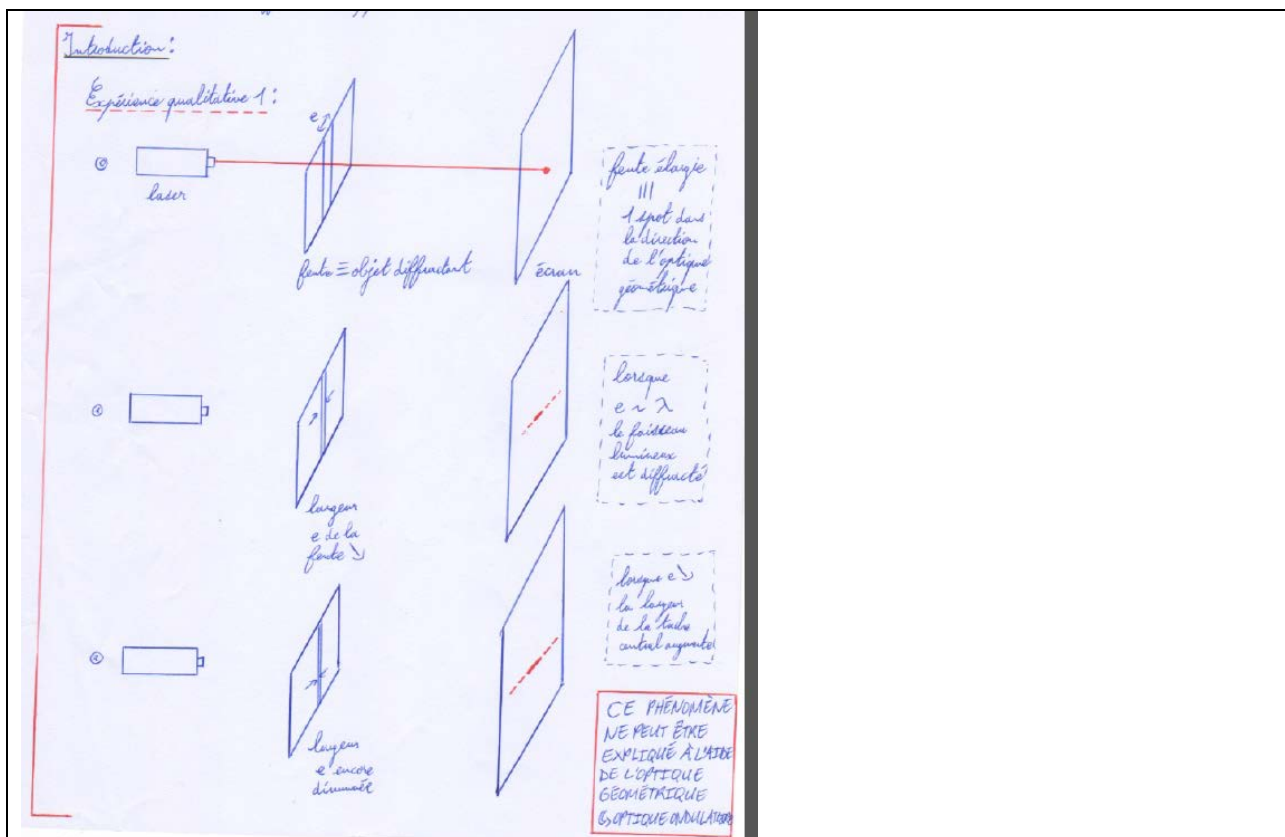 Introduction :
Expérience qualitative 1 :
⓪
laser
e
fente ≡ objet diffractant
écran
fente élargie
|||
1 spot dans
la direction
de l'optique
géométrique
①
largeur
e de la
fente ↘
lorsque
e ~ λ
le faisseau
lumineux
est diffracté
②
largeur
e encore
diminuée
lorsque e ↘
la largeur
de la tache
central augmente
CE PHÉNOMÈNE
NE PEUT ÊTRE
EXPLIQUÉ À L'AIDE
DE L'OPTIQUE
GÉOMÉTRIQUE
↳ OPTIQUE ONDULATOIRE